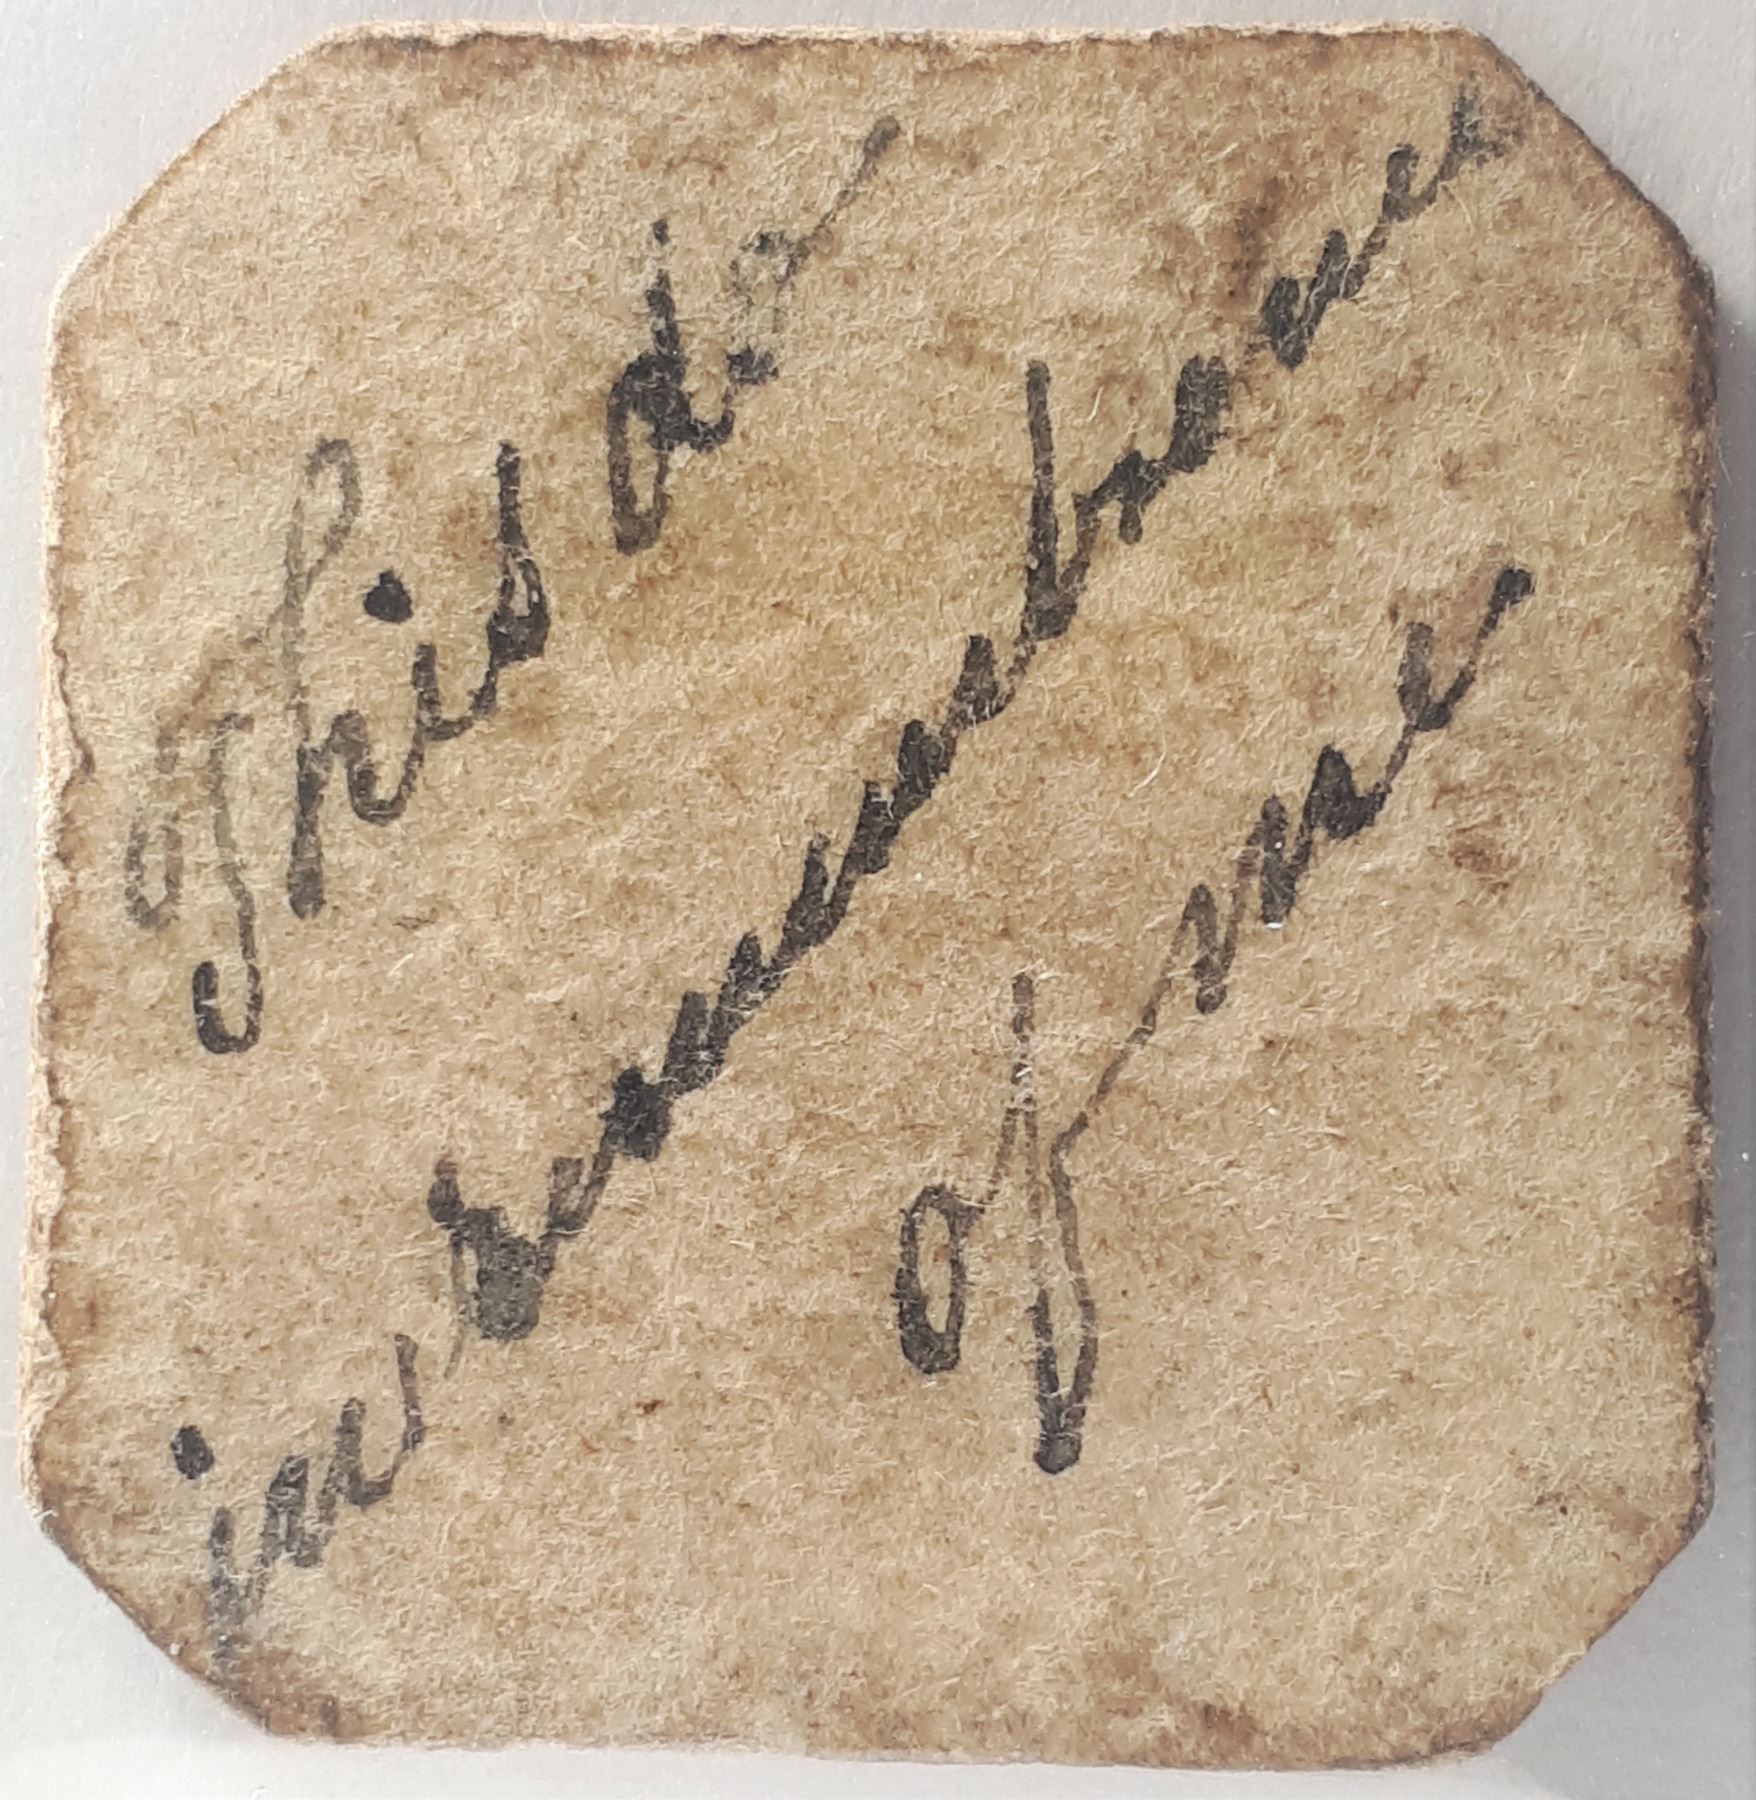 This do
in remembrance
of me